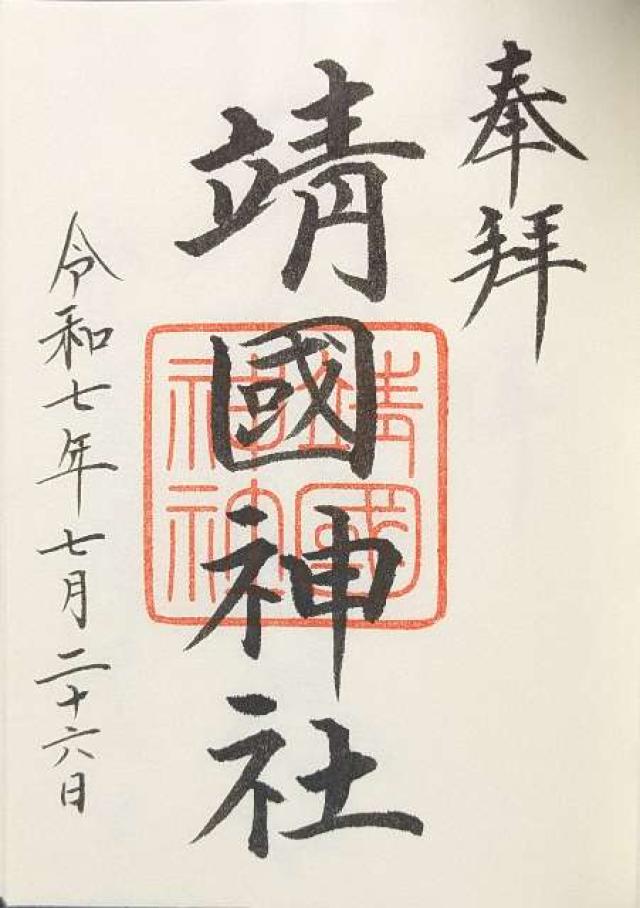 奉拝
靖國神社
令和七年七月二十六日
靖國
神社